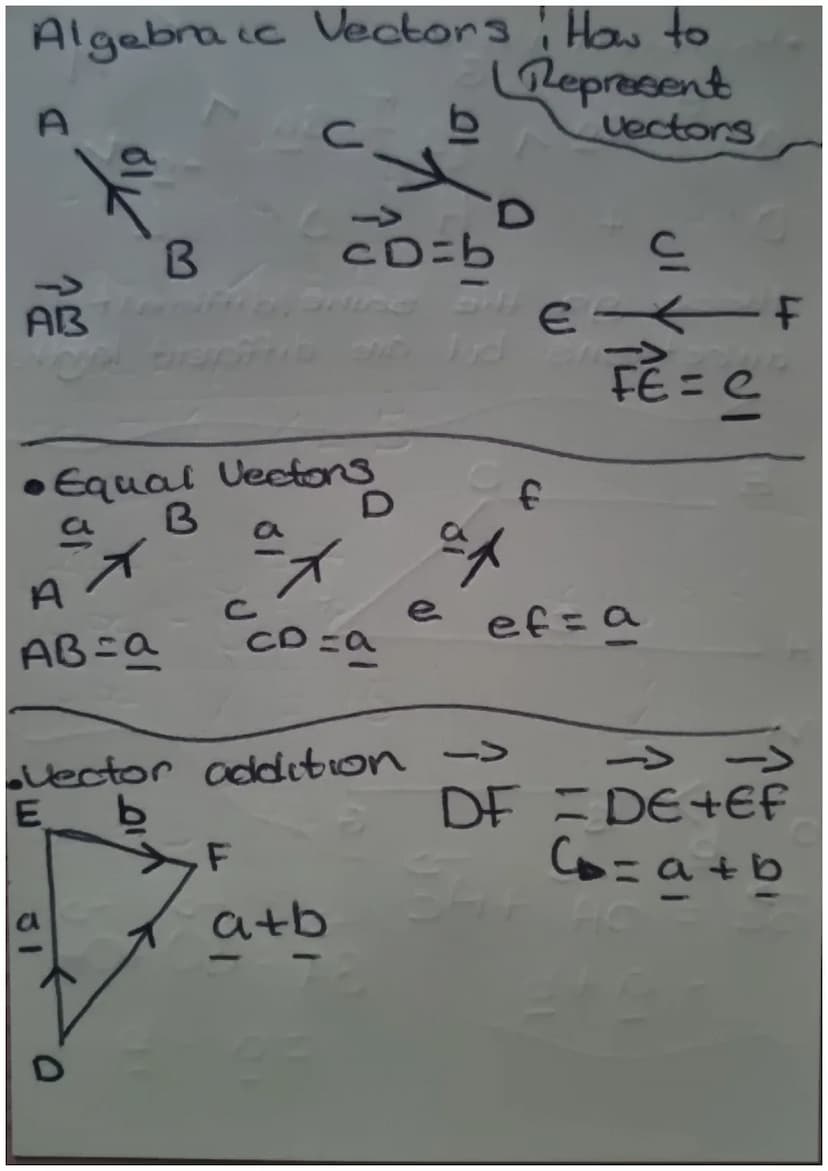 Algebraic Vectors : How to
Represent
vectors
A
a
B
AB
C
b
D
CD=b
c
E
F
FE = c
• Equal Vectors
a
B
A
AB=a
a
D
C
CD=a
a
f
e
ef= a
• Vector addition
DF = DE+EF
= a + b
E
b
F
a
a+b
D